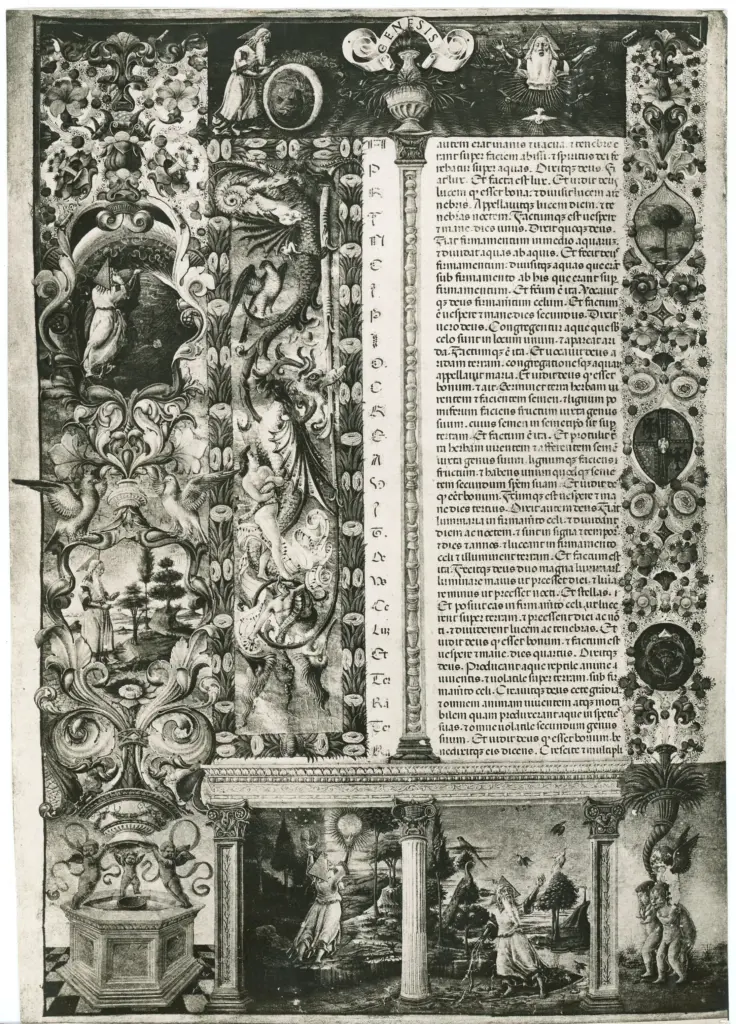 GENESIS
PRINCIPIO. CREAVIT. DE
autem erat inanis & uacua. & tenebre e
rant super faciem abissi. & spiritus dei fe
rebatur super aquas. Dixitqз deus.
lux. Et facta est lux. Et uidit deus
lucem q esset bona: & diuisit lucem a te
nebris. Appellauitqз lucem diem. & te
nebras noctem. Factumqз est uespere
& mane. dies unus. Dixit quoqз deus.
Fiat firmamentum in medio aquarum
& diuidat aquas ab aquis. Et fecit deus
firmamentum. diuisitqз aquas que erāt
sub firmamento ab his que erant sup
firmamentum. Et fctum ē ita. Vocauit
qз deus firmamētum celum. Et factum
ē uespere & mane dies secundus. Dixit
uero deus. Congregentur aque que sub
celo sunt in locum unum. & apareat ari
da. Factumqз ē ita. Et uocauit deus a
ridam terram. congregationesqз aquar
appellauit maria. Et uidit deus q esset
bonum. & ait. Germinet terra herbam ui
rentem & facientem semen. & lignum po
miferum faciens fructum iuxta genus
suum. cuius semen in semetipso sit sup
terram. Et factum ē ita. Et protulit t
ra herbam uirentem & afferentem semē
iuxta genus suum. lignumqз faciens
fructum. & habens unum quodqз seme
tem secundum spēm suam. Et uidit de
us q eēt bonum. Fctumqз est uespere & ma
ne dies tertius. Dixit autem deus. Fiāt
luminaria in firmamēto celi. & diuidant
diem ac noctem. & sint in signa & tempora
& dies & annos. & luceant in firmamento
celi & illuminent terram. Et factum est
ita. Fecitqз deus duo magna luminaria
luminare maius ut preesset diei. & lūia
re minus ut preesset nocti. Et stellas.
Et posuit eas in firmamēto celi. ut luce
rent super terram. & preessent diei ac no
ti. & diuiderent lucem ac tenebras. Et
uidit deus q esset bonum. & factum est
uespere & mane. dies quartus. Dixitqз
deus. Producant aque reptile anime
uiuentis. & uolatile super terram. sub fir
mamēto celi. Creauitqз deus cete grādia.
& omnem animam uiuentem atqз mota
bilem quam produxerant aque in species
suas. & omne uolatile secundum genus
suum. Et uidit deus q esset bonum. be
nedixitqз eis dicens. Crescite & multipli